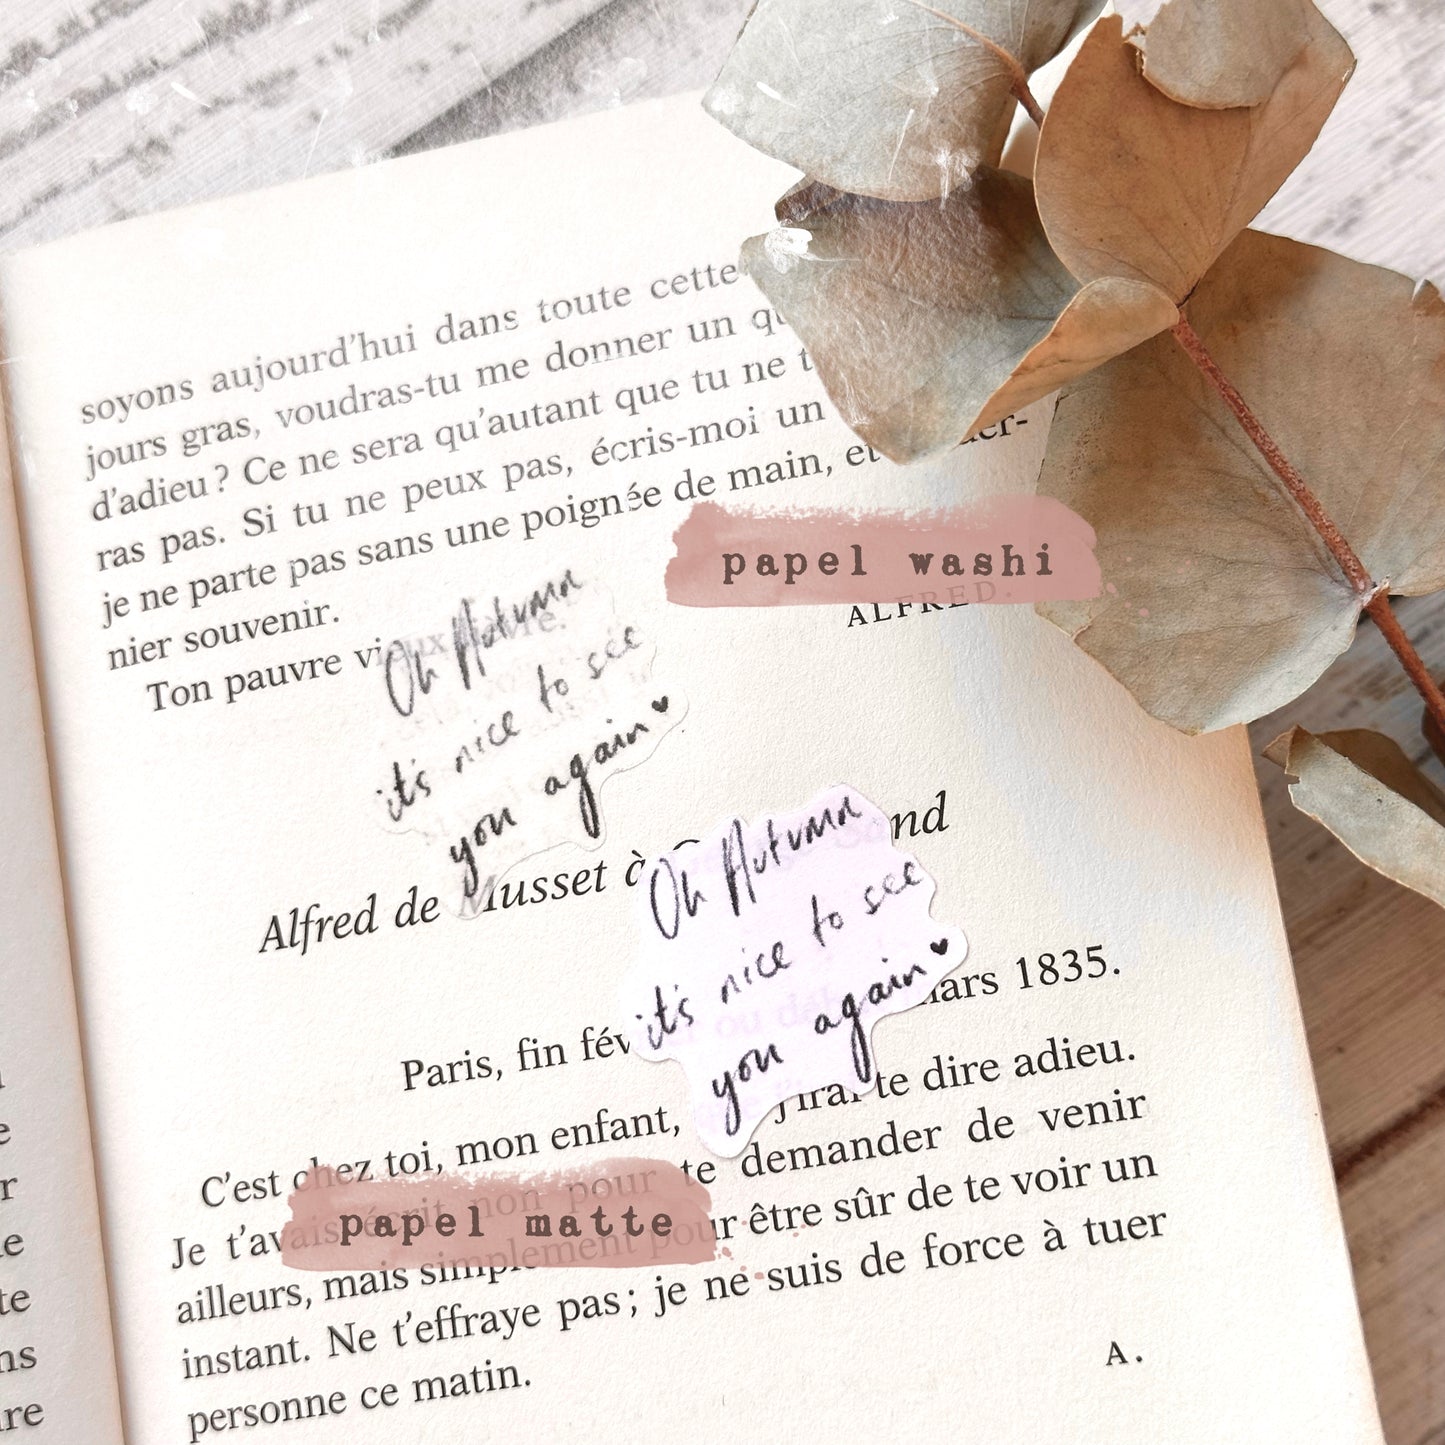 soyons aujourd'hui dans toute cette
jours gras, voudras-tu me donner un
d'adieu ? Ce ne sera qu'autant que tu ne
ras pas. Si tu ne peux pas, écris-moi un
je ne parte pas sans une poignée de main, et
nier souvenir.
papel washi
Ton pauvre vieux
ALFRED.
Oh Autumn
it's nice to see
you again
Alfred de Musset à
Oh Autumn
it's nice to see
you again
Paris, fin mars 1835.
C'est chez toi, mon enfant, j'irai te dire adieu.
Je t'avais écrit non pour te demander de venir
papel matte
ailleurs, mais simplement pour être sûr de te voir un
instant. Ne t'effraye pas ; je ne suis de force à tuer
personne ce matin.
A.